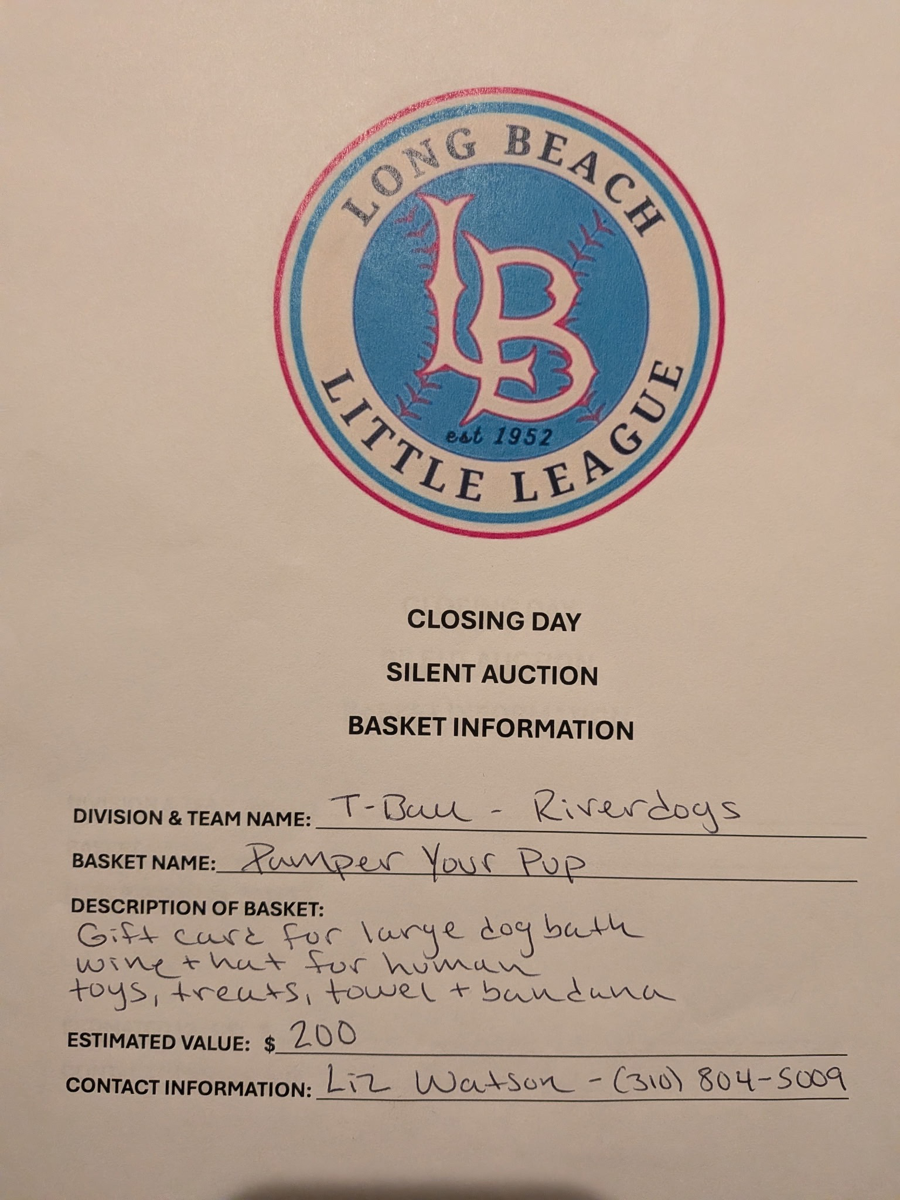 LONG BEACH
LB
est 1952
LITTLE LEAGUE
CLOSING DAY
SILENT AUCTION
BASKET INFORMATION
DIVISION & TEAM NAME: T-Ball - Riverdogs
BASKET NAME: Pamper Your Pup
DESCRIPTION OF BASKET:
Gift card for large dog bath
wine + hat for human
toys, treats, towel + bandana
ESTIMATED VALUE: $ 200
CONTACT INFORMATION: Liz Watson - (310) 804-5009